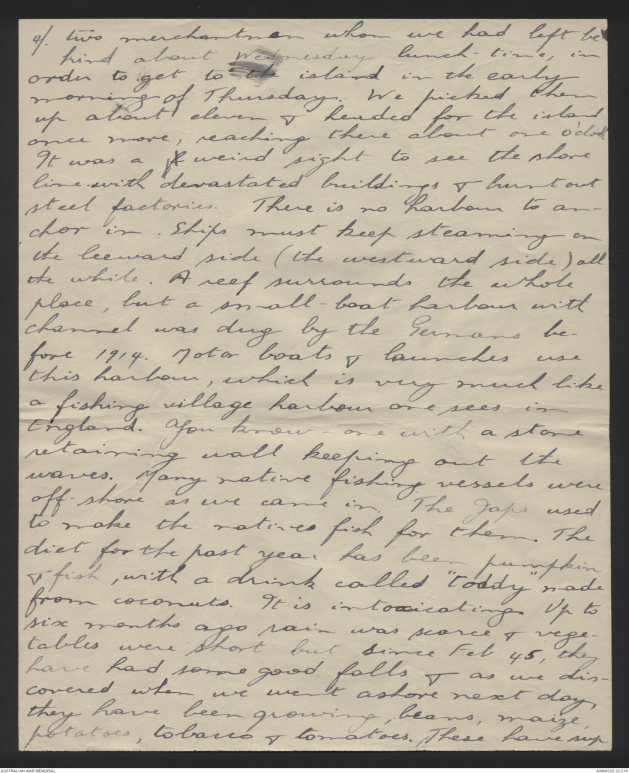 4/. two merchantmen whom we had left be
hind about Wednesday lunch-time, in
order to get to the island in the early
morning of Thursday. We picked them
up about eleven & headed for the island
once more, reaching there about one o'clock
It was a weird sight to see the shore
line with devastated buildings & burnt out
steel factories. There is no harbour to an-
chor in. Ships must keep steaming on
the leeward side (the westward side) all
the while. A reef surrounds the whole
place, but a small-boat harbour with
channel was dug by the Germans be-
fore 1914. Motor boats & launches use
this harbour, which is very much like
a fishing village harbour one sees in
England. You know - one with a stone
retaining wall keeping out the
waves. Many native fishing vessels were
off-shore as we came in. The Japs used
to make the natives fish for them. The
diet for the past year has been pumpkin
& fish, with a drink called "toddy" made
from coconuts. It is intoxicating. Up to
six months ago rain was scarce & vege-
tables were short but since Feb 45, they
have had some good falls & as we dis-
covered when we went ashore next day,
they have been growing, beans, maize,
potatoes, tobacco & tomatoes. These have sup
AUSTRALIAN WAR MEMORIAL